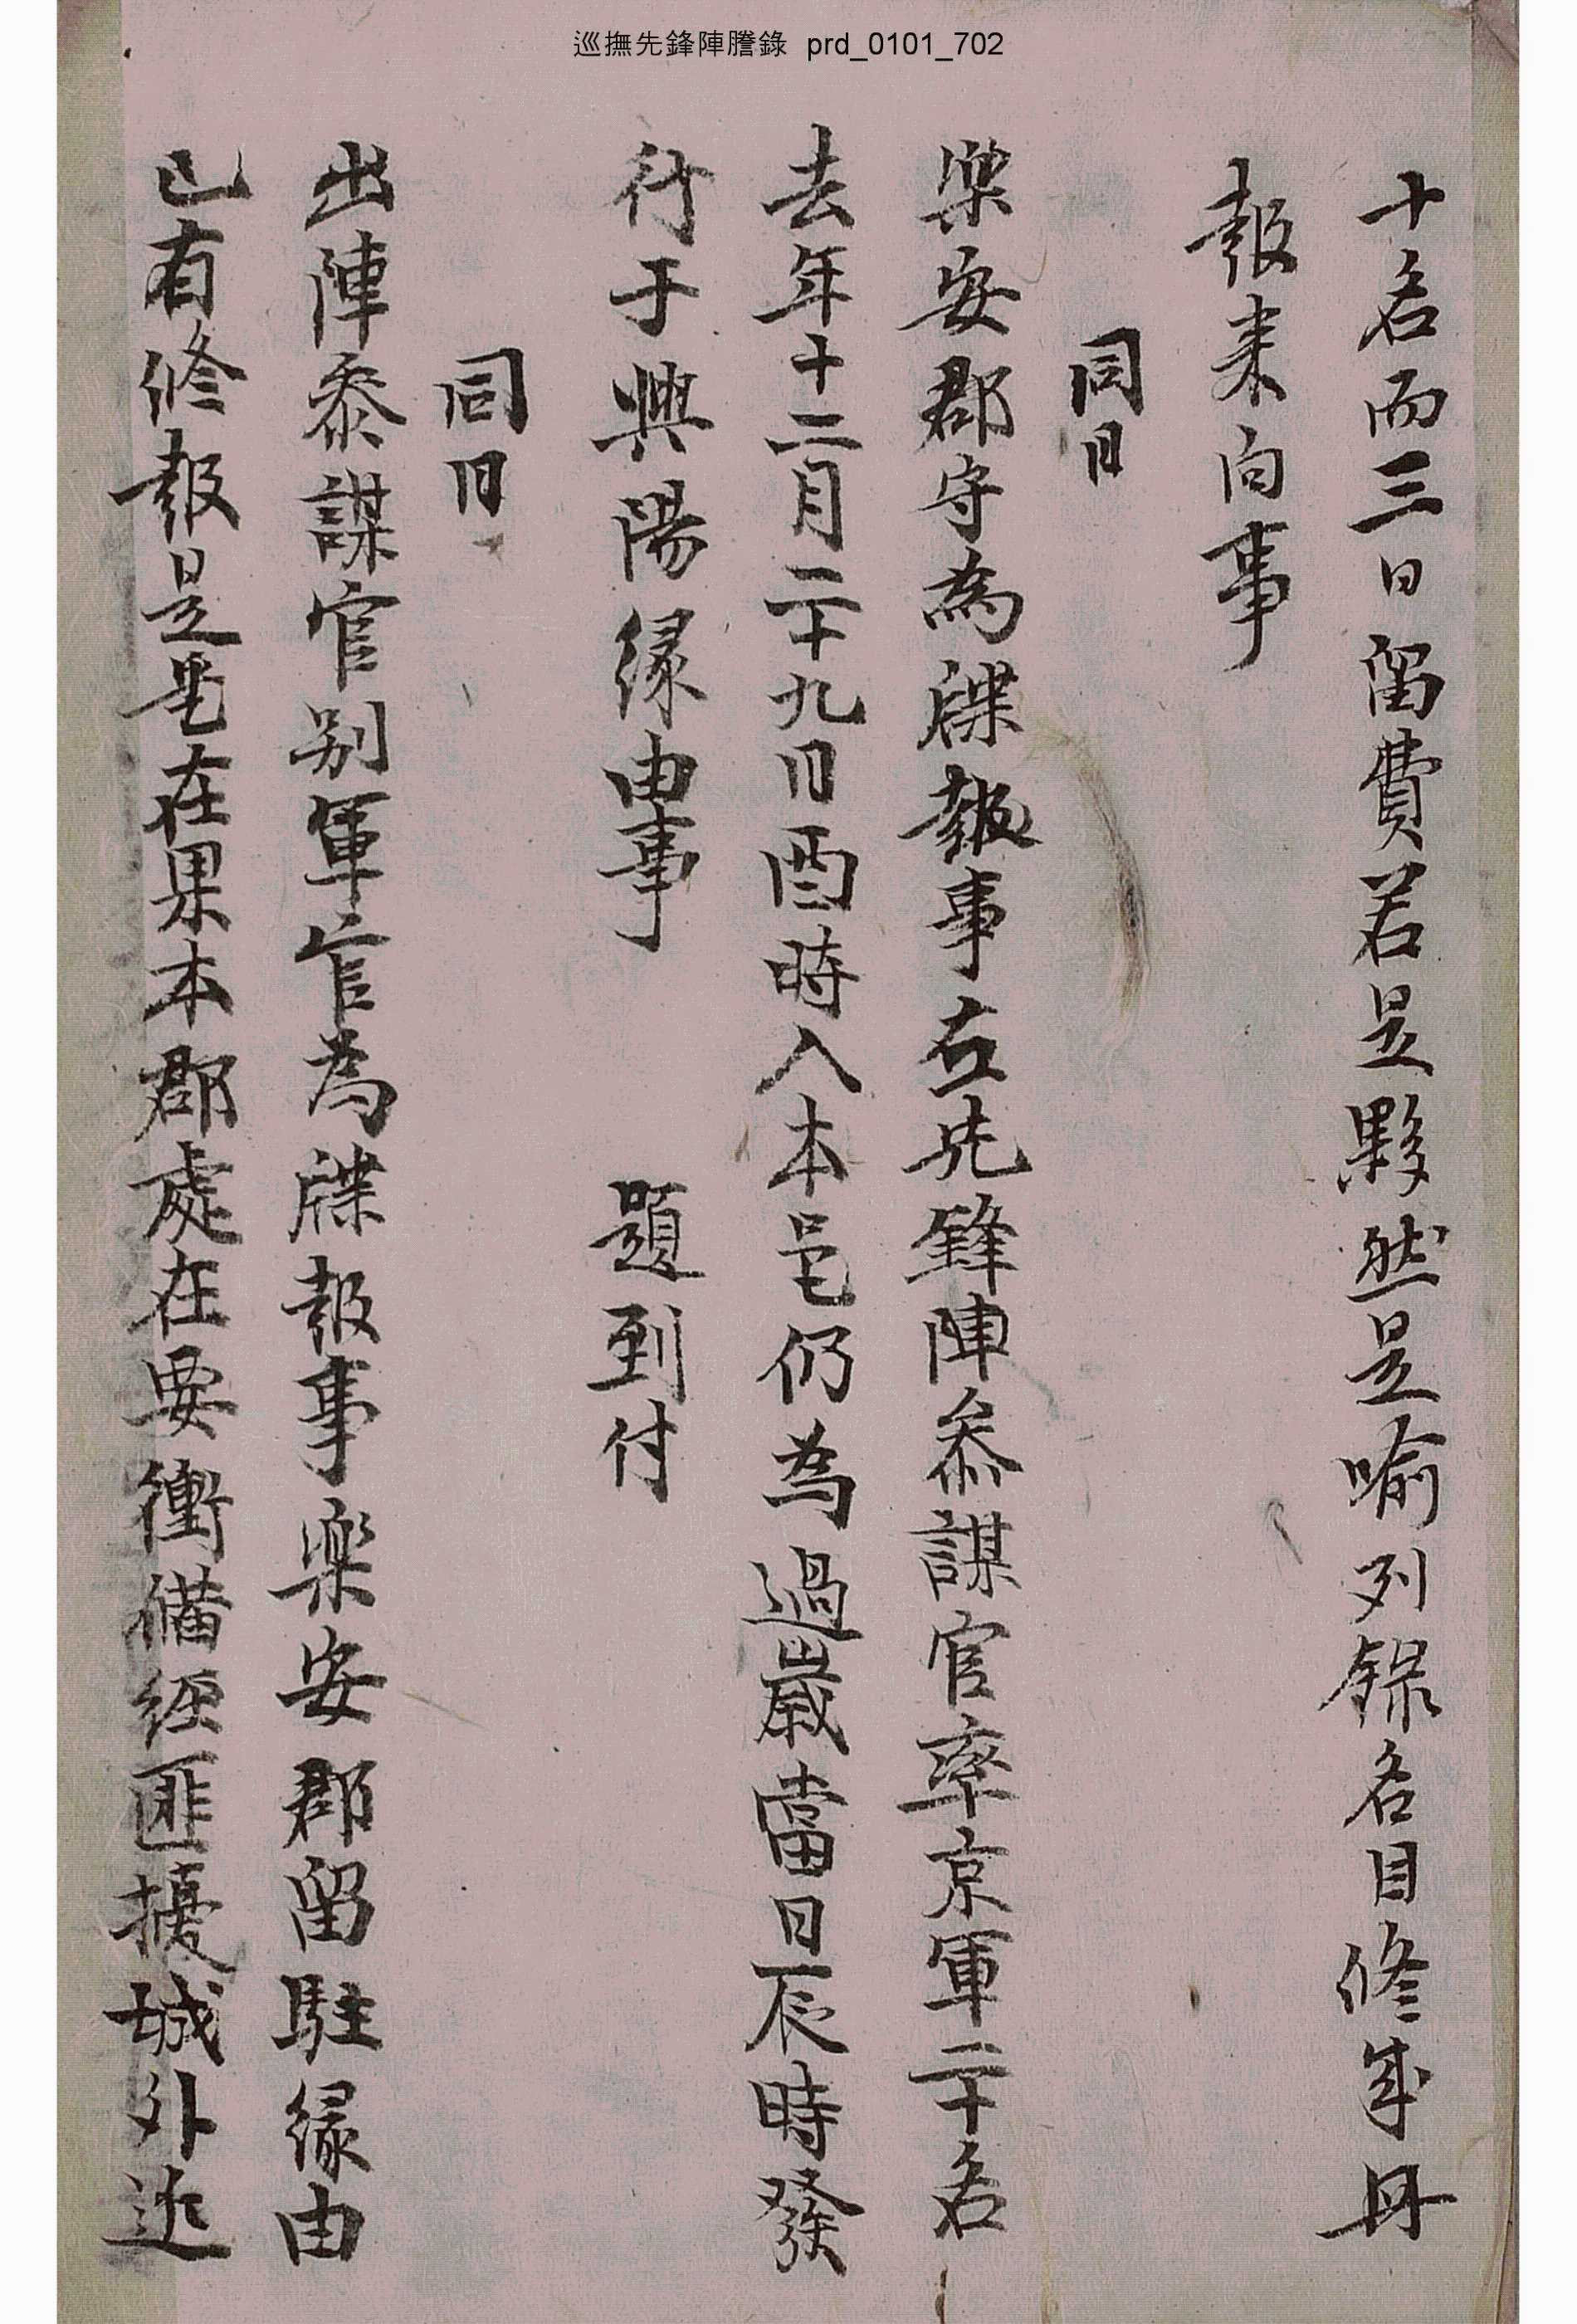 巡撫先鋒陣謄錄 prd_0101_702
十名而三日留費若是夥然是喻列錄名目修成冊
報來向事
同日
樂安郡守為牒報事右先鋒陣叅謀官率京軍二十名
去年十二月二十九日酉時入本邑仍為過歲當日辰時發
行于興陽緣由事 題到付
同日
出陣叅謀官別軍官為牒報事樂安郡留駐緣由
已有修報是乎在果本郡處在要衝備經匪擾城外近